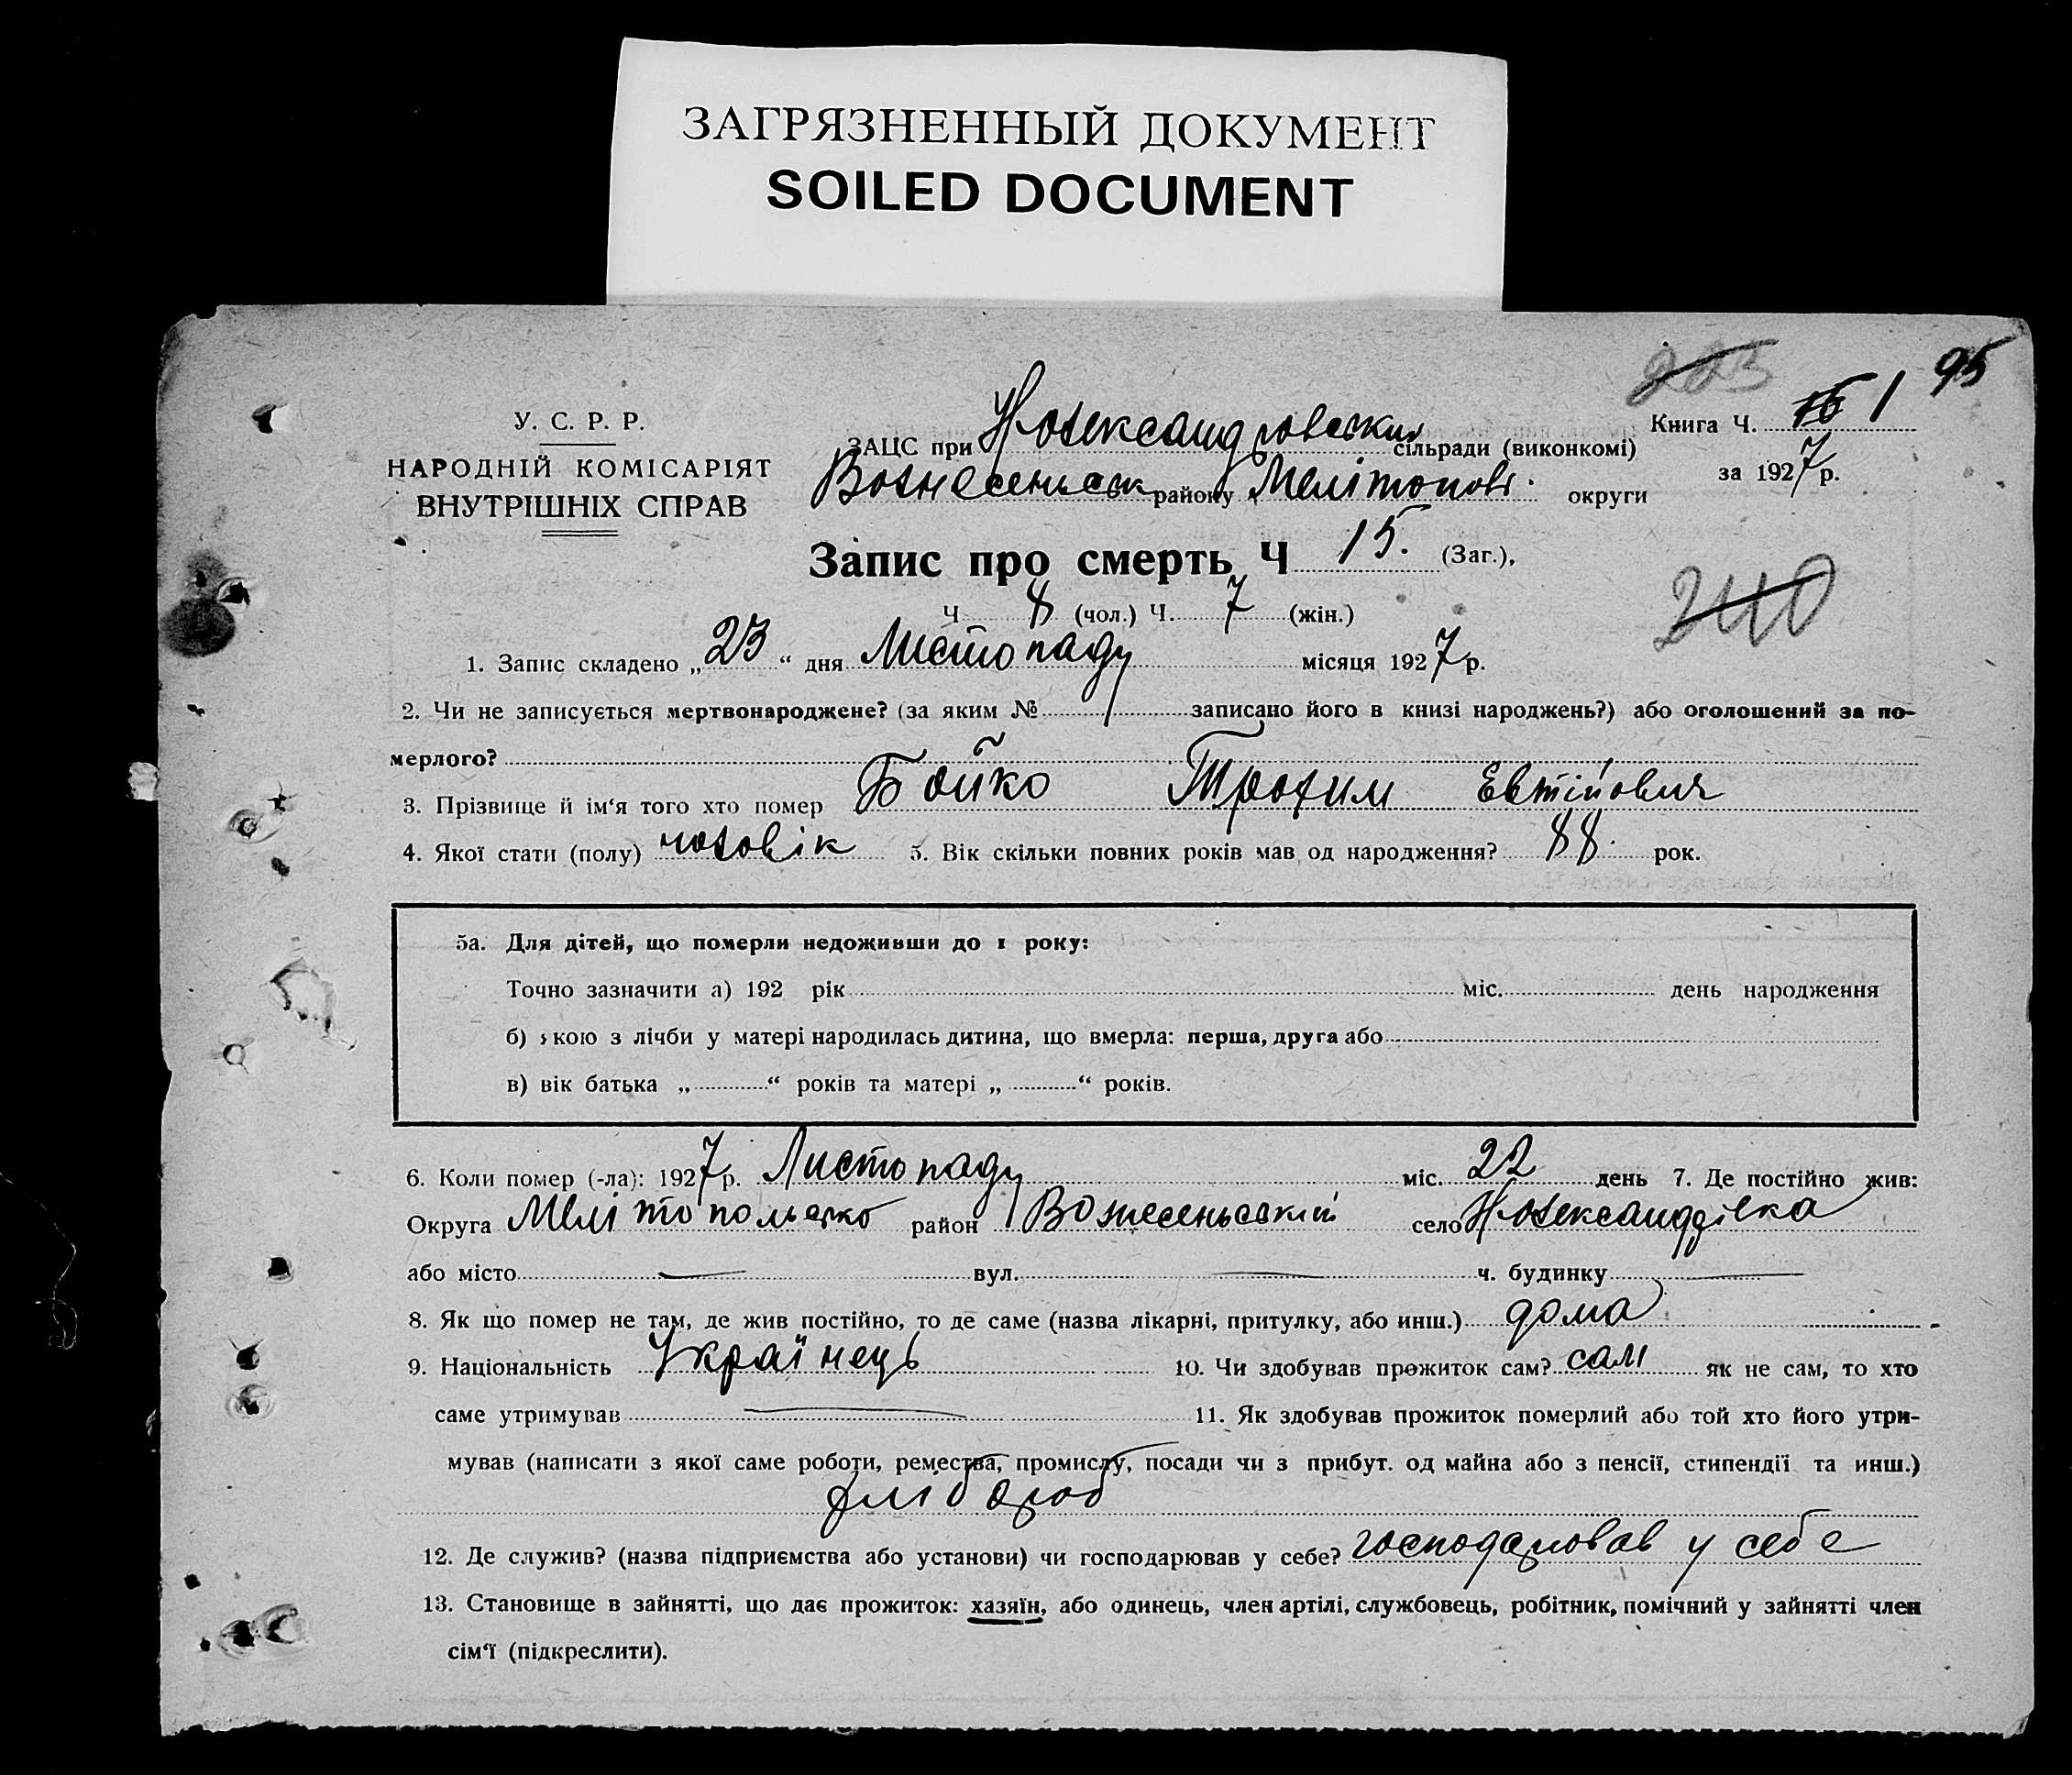 ЗАГРЯЗНЕННЫЙ ДОКУМЕНТ
SOILED DOCUMENT
95
У. С. Р. Р.
НАРОДНІЙ КОМІСАРІЯТ
ВНУТРІШНІХ СПРАВ
Книга Ч. 1
за 1927 р.
ЗАЦС при сільради (виконкомі)
Вознесенськ району Мелітопові. округи
Запис про смерть Ч 15. (Заг.),
240
Ч 8 (чол.) Ч. 7 (жін.)
1. Запис складено „23“ дня Листопаду місяця 1927 р.
2. Чи не записується мертвонароджене? (за яким № записано його в книзі народжень?) або оголошений за по-
мерлого?
3. Прізвище й ім‘я того хто помер Бойко Трохим
4. Якої стати (полу) чоловік 5. Вік скільки повних років мав од народження? 88. рок.
5а. Для дітей, що померли недоживши до 1 року:
Точно зазначити а) 192 рік міс. день народження
б) якою з лічби у матері народилась дитина, що вмерла: перша, друга або
в) вік батька „ “ років та матері „ “ років.
6. Коли помер (-ла): 1927 р. Листопаду міс. 22 день 7. Де постійно жив:
Округа Мелітопольсько район Вознесенський село
або місто — вул. — ч. будинку —
8. Як що помер не там, де жив постійно, то де саме (назва лікарні, притулку, або инш.) дома
9. Національність Українець 10. Чи здобував прожиток сам? сам як не сам, то хто
саме утримував — 11. Як здобував прожиток померлий або той хто його утри-
мував (написати з якої саме роботи, ремества, промислу, посади чи з прибут. од майна або з пенсії, стипендії та инш.)
хлібороб
12. Де служив? (назва підприємства або установи) чи господарював у себе? господарював у себе
13. Становище в зайнятті, що дає прожиток: хазяїн, або одинець, член артілі, службовець, робітник, помічний у зайнятті член
сім‘ї (підкреслити).